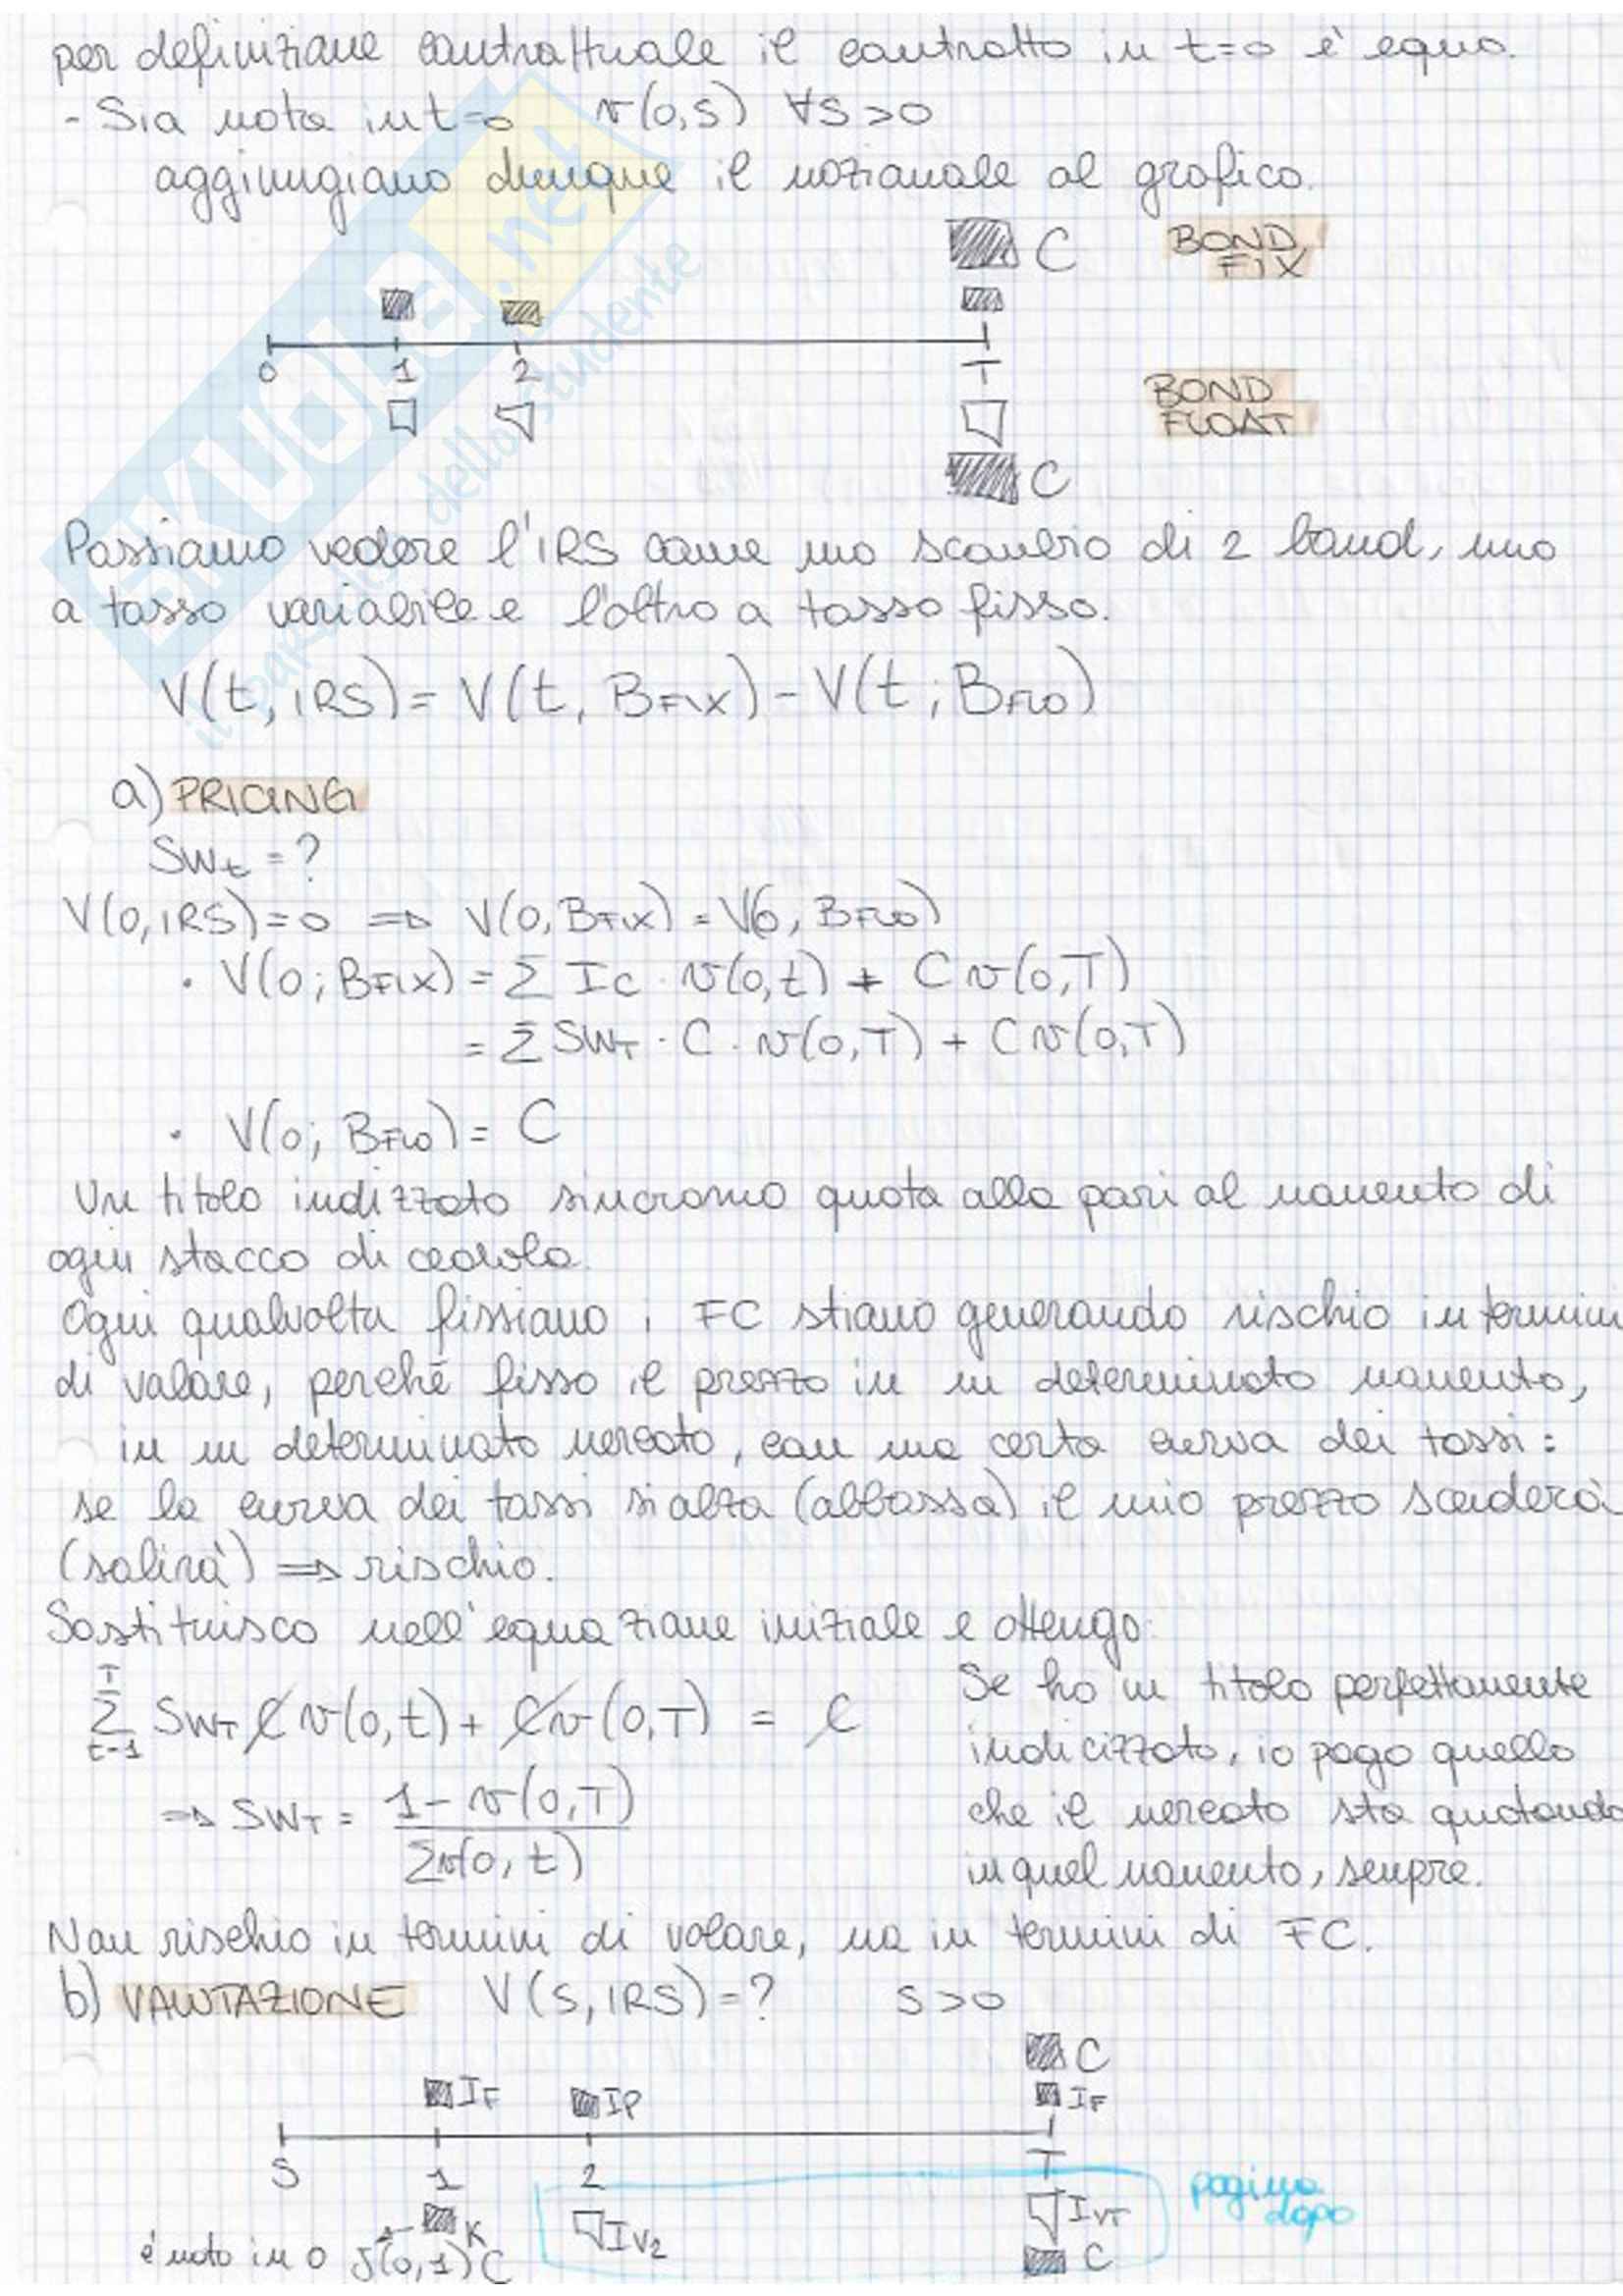 per definizione contrattuale il contratto in t=0 è equo.
- Sia nota in t=0 v(0,s) ∀s>0
aggiungiamo dunque il nozionale al grafico.
C BOND FIX
0 1 2 T
BOND FLOAT
C
Possiamo vedere l'IRS come uno scambio di 2 bond, uno
a tasso variabile e l'altro a tasso fisso.
V(t, IRS) = V(t, BFIX) - V(t; BFLO)
a) PRICING
SWt = ?
V(0, IRS) = 0 ⇒ V(0, BFIX) = V(0, BFLO)
· V(0; BFIX) = Σ Ic · v(0,t) + C v(0,T)
= Σ SWT · C · v(0,T) + C v(0,T)
· V(0; BFLO) = C
Un titolo indizzato sincrono quota alla pari al momento di
ogni stacco di cedola.
Ogni qualvolta fissiamo i FC stiamo generando rischio in termini
di valore, perché fisso il prezzo in un determinato momento,
in un determinato mercato, con una certa curva dei tassi:
se la curva dei tassi si alza (abbassa) il mio prezzo scenderà
(salirà) ⇒ rischio.
Sostituisco nell'equazione iniziale e ottengo:
T
Σ SWT C v(0,t) + C v(0,T) = C
t=1
⇒ SWT = 1 - v(0,T) / Σv(0,t)
Se ho un titolo perfettamente
indicizzato, io pago quello
che il mercato sta quotando
in quel momento, sempre.
Non rischio in termini di valore, ma in termini di FC.
b) VALUTAZIONE V(s, IRS) = ? s>0
C
IF IF IF
S 1 2 T
pagina dopo
K IV2 IVT
è noto in 0 J(0,1)C C
SKUOLA.net
il paradiso dello studente